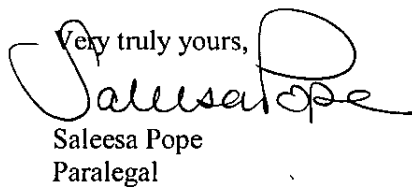 Very truly yours,
Saleesa Pope
Saleesa Pope
Paralegal